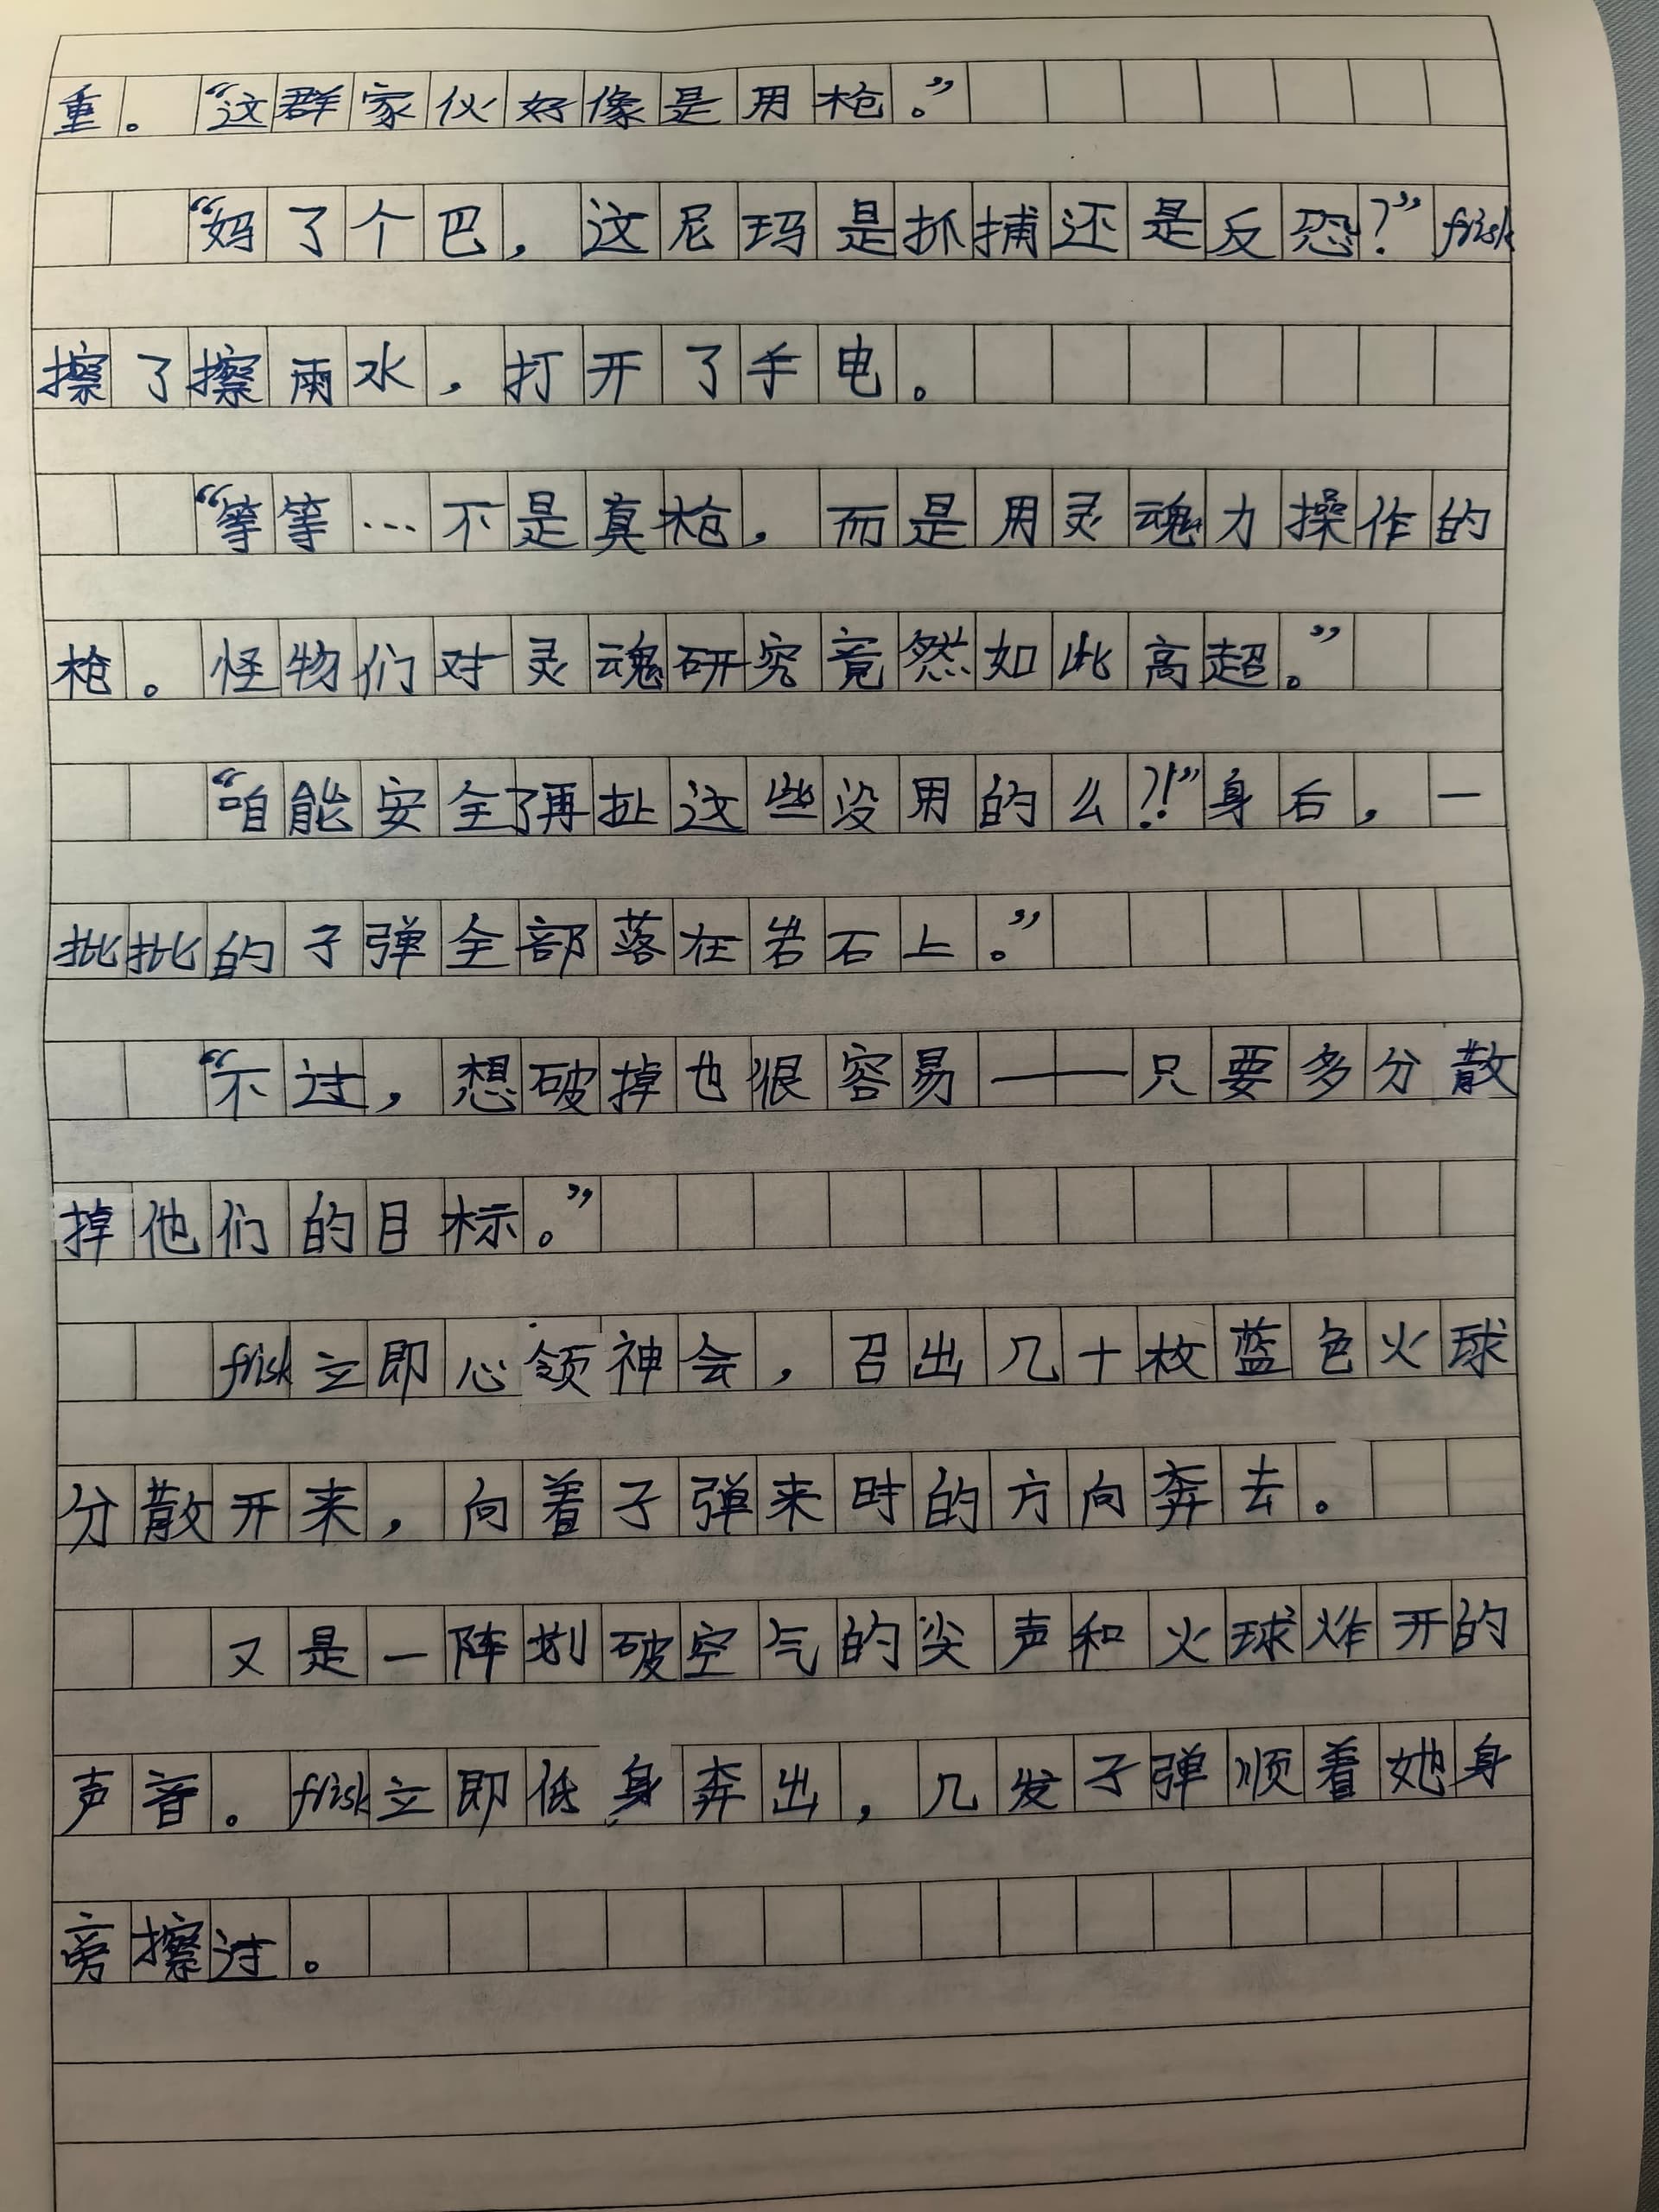 重。“这群家伙好像是用枪。”
“妈了个巴，这尼玛是抓捕还是反恐？”frisk
擦了擦雨水，打开了手电。
“等等…不是真枪，而是用灵魂力操作的
枪。怪物们对灵魂研究竟然如此高超。”
“咱能安全了再扯这些没用的么?!”身后，一
批批的子弹全部落在岩石上。”
“不过，想破掉也很容易——只要多分散
掉他们的目标。”
frisk立即心领神会，召出几十枚蓝色火球
分散开来，向着子弹来时的方向奔去。
又是一阵划破空气的尖声和火球炸开的
声音。frisk立即低身奔出，几发子弹顺着她身
旁擦过。